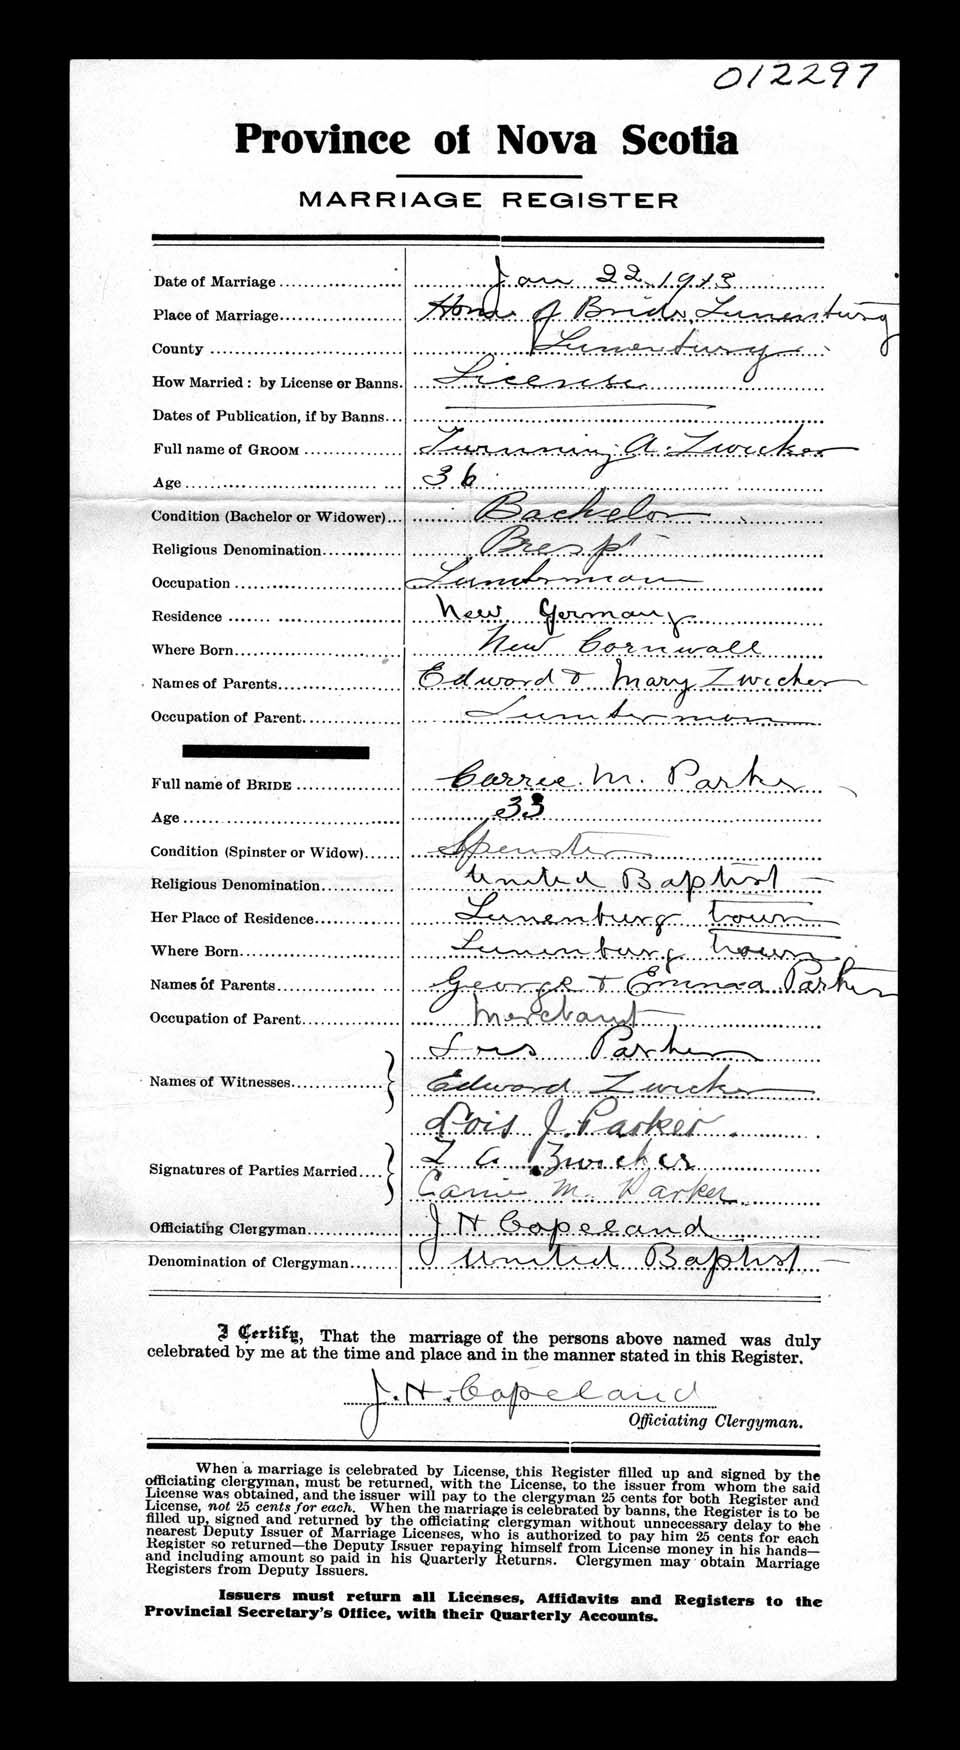 012297
Province of Nova Scotia
MARRIAGE REGISTER
Date of Marriage Jan 22 1913
Place of Marriage Home of Bride Lunenburg
County Lunenburg
How Married: by License or Banns. License
Dates of Publication, if by Banns
Full name of GROOM A. Zwicker
Age 36
Condition (Bachelor or Widower) Bachelor
Religious Denomination Prespt
Occupation Lumberman
Residence New Germany
Where Born New Cornwall
Names of Parents Edward & Mary Zwicker
Occupation of Parent Lumberman
Full name of BRIDE Carrie M. Parker
Age 33
Condition (Spinster or Widow) Spenster
Religious Denomination United Baptist
Her Place of Residence Lunenburg town
Where Born Lunenburg town
Names of Parents George & Emma Parker
Occupation of Parent Merchant
Parker
Names of Witnesses Edward Zwicker
Lois J. Parker
Signatures of Parties Married A Zwicker
Carrie M. Parker
Officiating Clergyman J H Copeland
Denomination of Clergyman United Baptist
I Certify, That the marriage of the persons above named was duly
celebrated by me at the time and place and in the manner stated in this Register.
J. H. Copeland
Officiating Clergyman.
When a marriage is celebrated by License, this Register filled up and signed by the
officiating clergyman, must be returned, with the License, to the issuer from whom the said
License was obtained, and the issuer will pay to the clergyman 25 cents for both Register and
License, not 25 cents for each. When the marriage is celebrated by banns, the Register is to be
filled up, signed and returned by the officiating clergyman without unnecessary delay to the
nearest Deputy Issuer of Marriage Licenses, who is authorized to pay him 25 cents for each
Register so returned—the Deputy Issuer repaying himself from License money in his hands—
and including amount so paid in his Quarterly Returns. Clergymen may obtain Marriage
Registers from Deputy Issuers.
Issuers must return all Licenses, Affidavits and Registers to the
Provincial Secretary's Office, with their Quarterly Accounts.